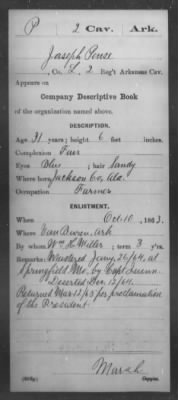 P 2 Cav. Ark.
Joseph Pense
, Co. L, 2 Reg't Arkansas Cav.
Appears on
Company Descriptive Book
of the organization named above.
DESCRIPTION.
Age 31 years; height 6 feet inches.
Complexion Fair
Eyes Blue ; hair Sandy
Where born Jackson Co, Ala.
Occupation Farmer
ENLISTMENT.
When Oct. 10, 1863.
Where Van Buren, Ark
By whom Wm H. Miller ; term 3 y'rs.
Remarks: Mustered Jany. 26/64, at
Springfield Mo, by Capt
Deserted Dec. 12/64.
Returned Mar. 12/65 per proclamation
of the President
Marsh
Copyist.